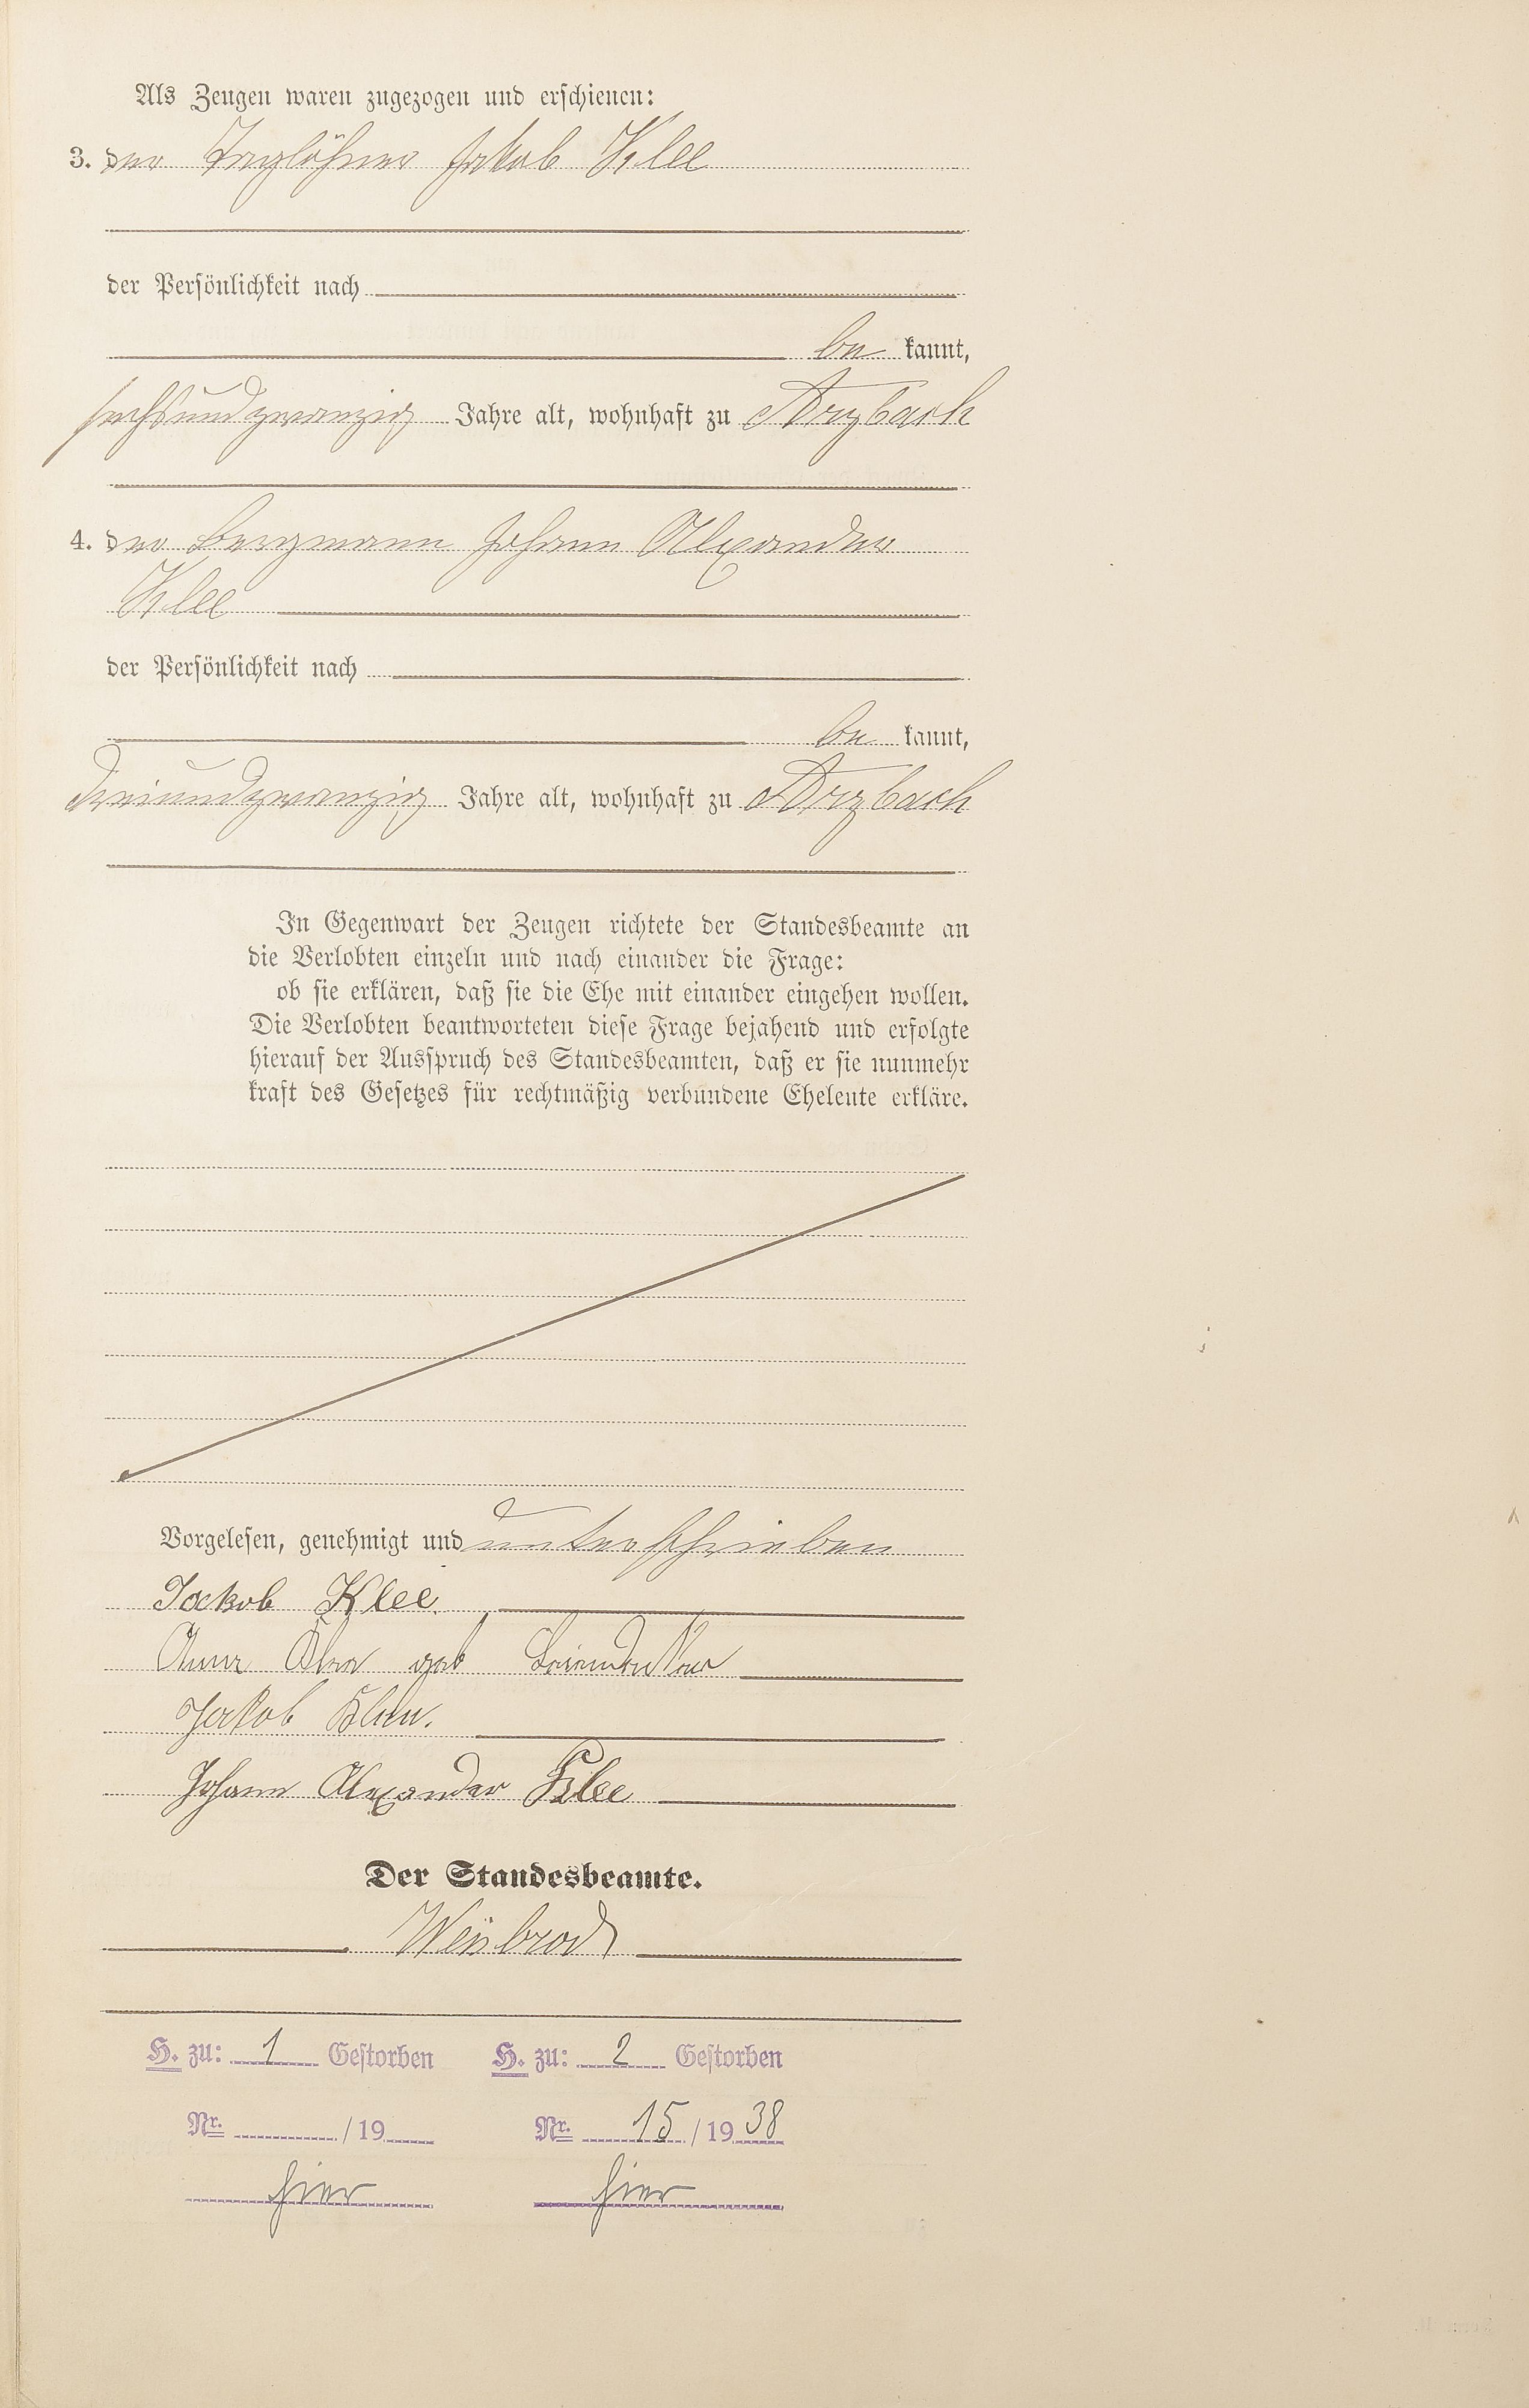 Als Zeugen waren zugezogen und erschienen:
3. der Taglöhner Jakob Klee
der Persönlichkeit nach
be kannt,
sechsundzwanzig Jahre alt, wohnhaft zu Arzbach
4. der Bergmann Johann Alexander
Klee
der Persönlichkeit nach
be kannt,
dreiundzwanzig Jahre alt, wohnhaft zu Arzbach
In Gegenwart der Zeugen richtete der Standesbeamte an
die Verlobten einzeln und nach einander die Frage:
ob sie erklären, daß sie die Ehe mit einander eingehen wollen.
Die Verlobten beantworteten diese Frage bejahend und erfolgte
hierauf der Ausspruch des Standesbeamten, daß er sie nunmehr
kraft des Gesetzes für rechtmäßig verbundene Eheleute erkläre.
Vorgelesen, genehmigt und unterschrieben
Jackob Klee.
Anna Klee geb
Jakob Klee.
Johann Alexander Klee
Der Standesbeamte.
Weisbrod
H. zu: 1 Gestorben H. zu: 2 Gestorben
Nr. /19 Nr. 15/1938
hier hier